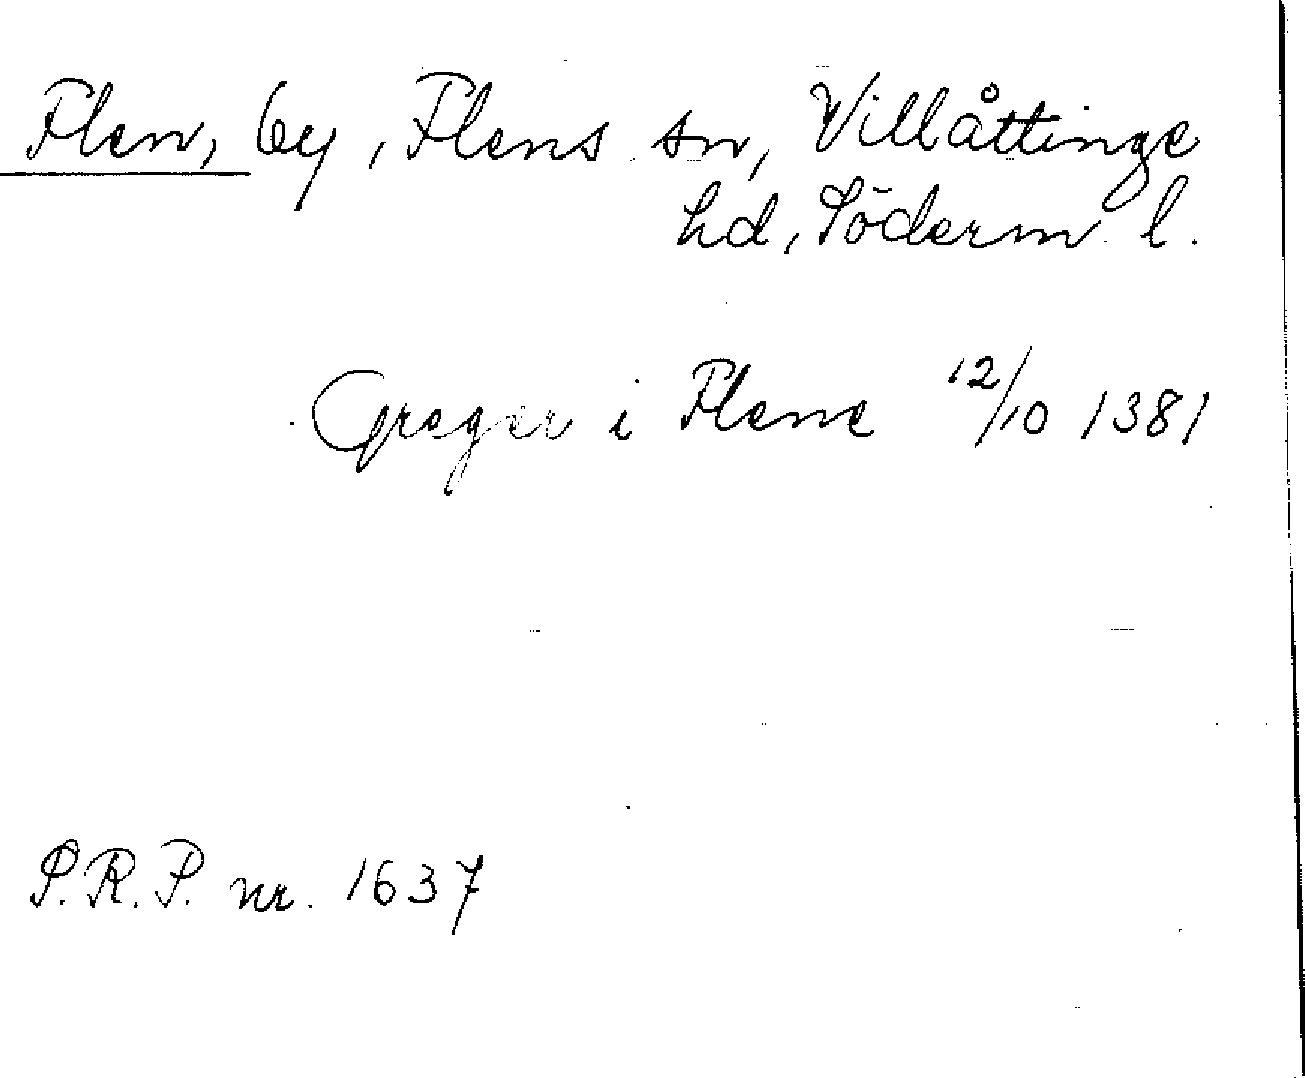 Flen, by, Flens sn, Villåttinge
hd, Söderm. l.
Greger i Flene 12/10 1381
S.R.P. nr. 1637